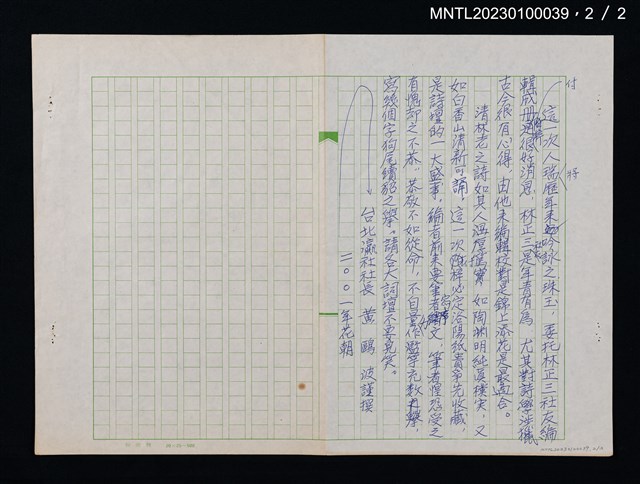 MNTL20230100039，2 / 2
付
這一次人瑞歷年來吟詠之珠玉，委托林正三社友編
輯成冊過很好消息，林正三是年青有為，尤其對詩學涉獵
古今很有心得，由他來編輯校對是錦上添花是最適合。
清林老之詩如其人溫厚篤實，如陶淵明純真樸實，又
如白香山清新可誦，這一次 必定洛陽紙貴爭先收藏，
是詩壇的一大盛事，編者前來要筆者 文，筆者惶恐受之
有愧却之不恭，恭敬不如從命，不自量作 充数之舉，
寫幾個字狗尾續貂之舉。請各大詞壇不要見笑。
台北瀛社社長 黃鷗波謹撰
二００一年花朝